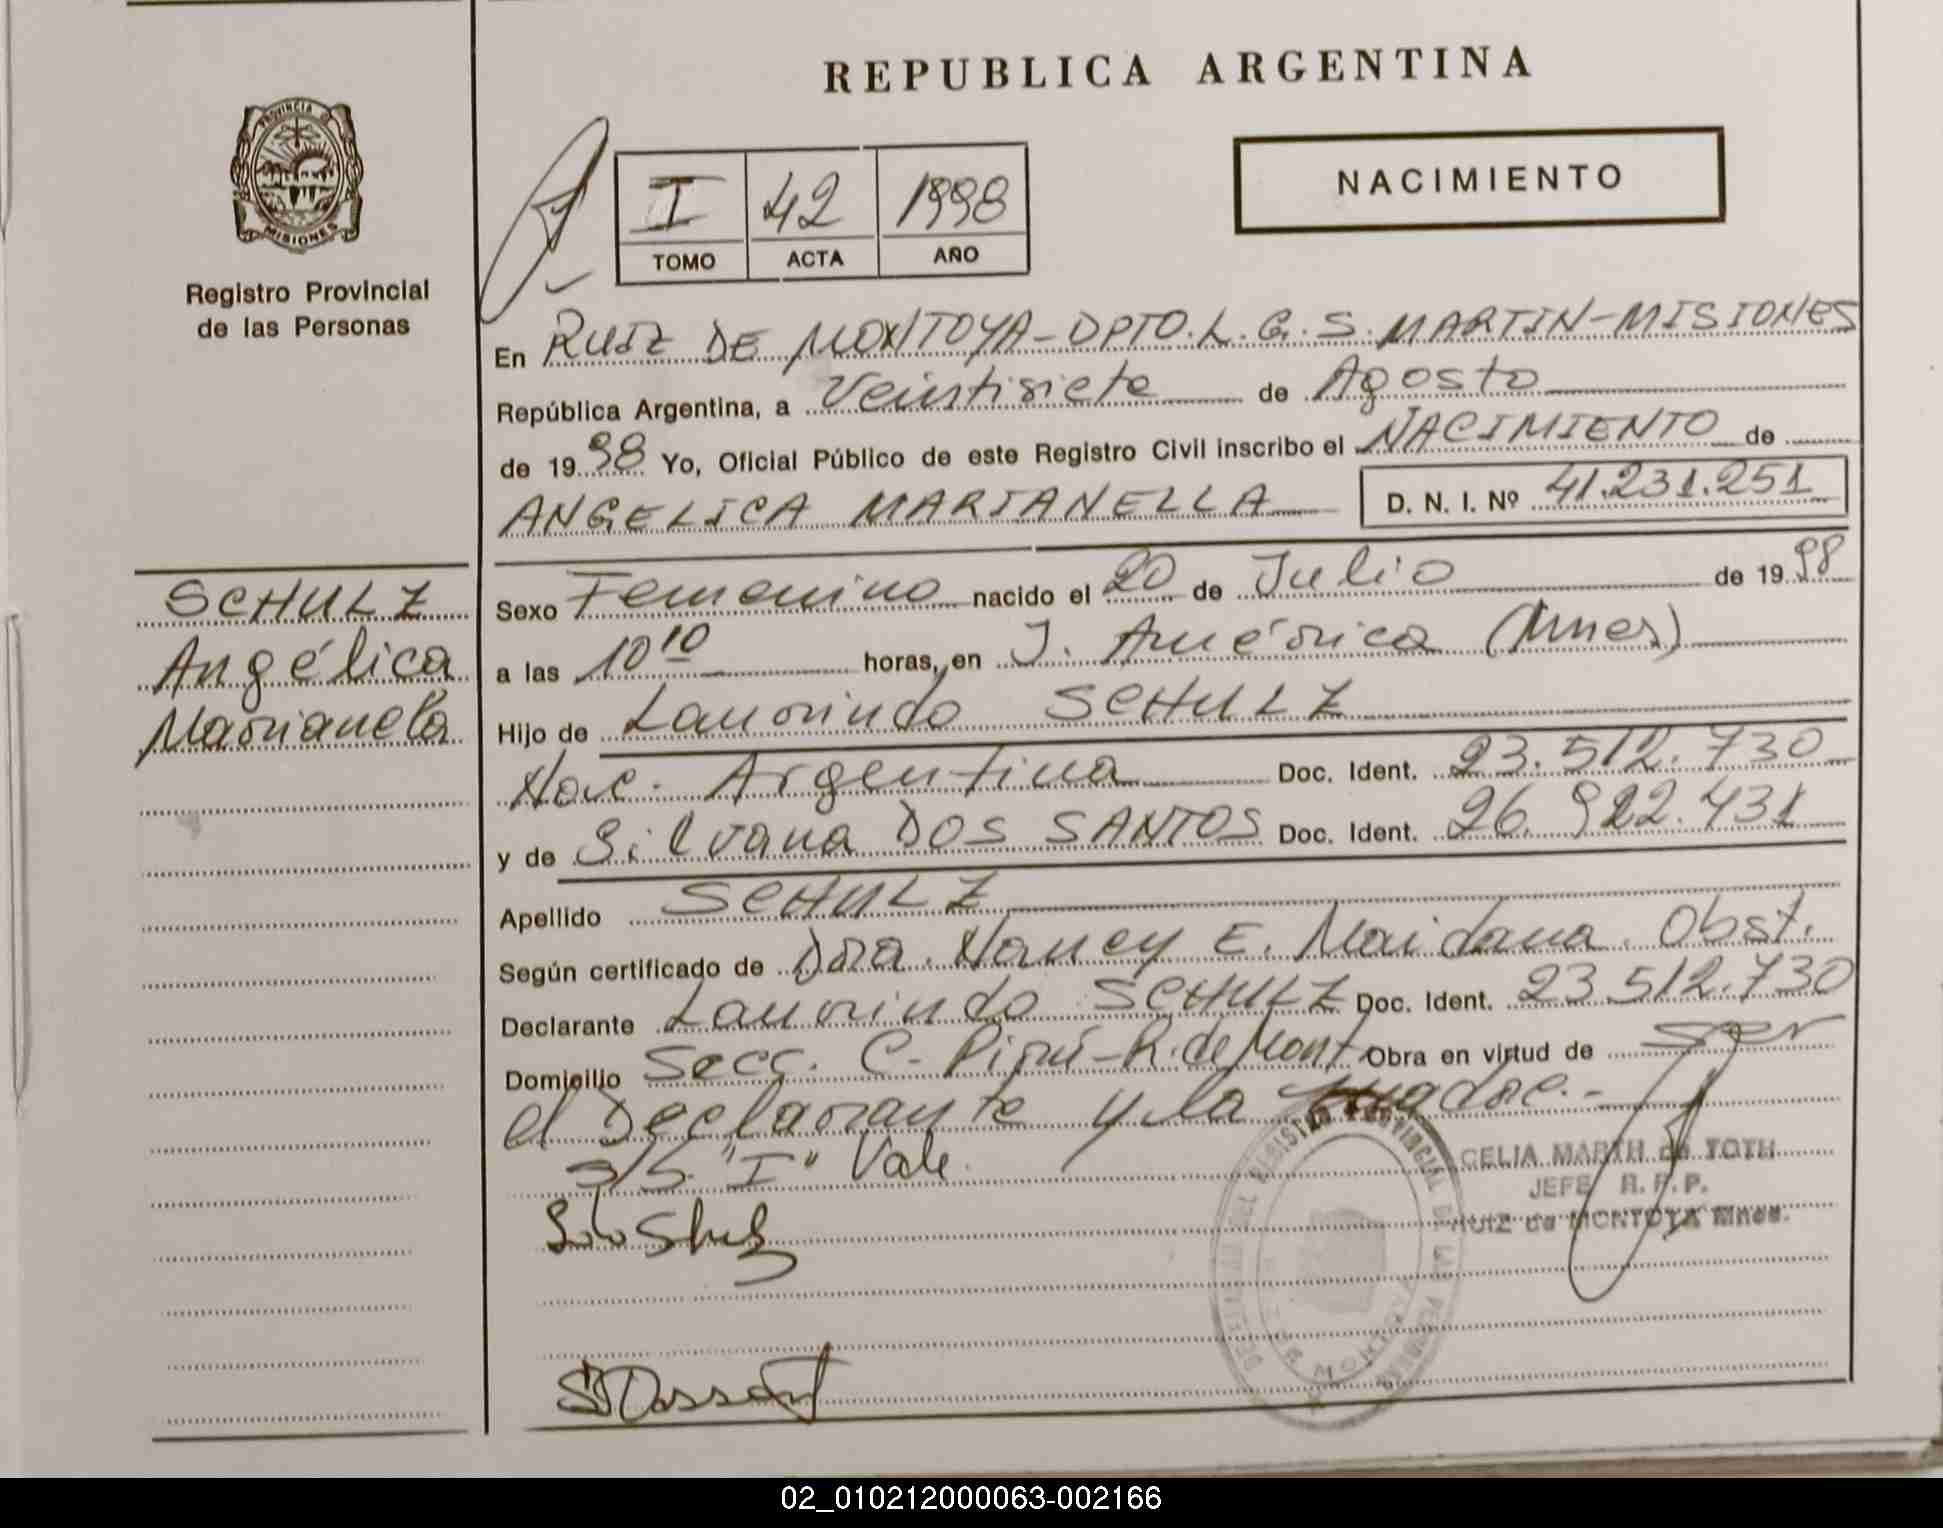 REPUBLICA ARGENTINA
PROVINCIA DE
MISIONES
Registro Provincial
de las Personas
I 42 1998
TOMO ACTA AÑO
NACIMIENTO
En RUIZ DE MONTOYA-DPTO. L. G. S. MARTIN-MISIONES
República Argentina, a Veintisiete de Agosto
de 1998 Yo, Oficial Público de este Registro Civil inscribo el NACIMIENTO de
ANGELICA MARIANELLA D. N. I. Nº 41.231.251
SCHULZ
Angélica
Marianela
Sexo Femenino nacido el 20 de Julio de 1998
a las 10 10 horas, en J. América (Mnes)
Hijo de Laurindo SCHULZ
Nac. Argentina Doc. Ident. 23.512.730
y de Silvana DOS SANTOS Doc. Ident. 26.922.431
Apellido SCHULZ
Según certificado de Dra. Nancy E. Maidana. Obst.
Declarante Laurindo SCHULZ Doc. Ident. 23.512.730
Domicilio Secc. C. Pirú-R. de Mont. Obra en virtud de Ser
el Declarante y la
S/S. "I" Vale.
CELIA MARTH de TOTH
JEFE R. P. P.
RUIZ de MONTOYA Mnes.
02_010212000063-002166